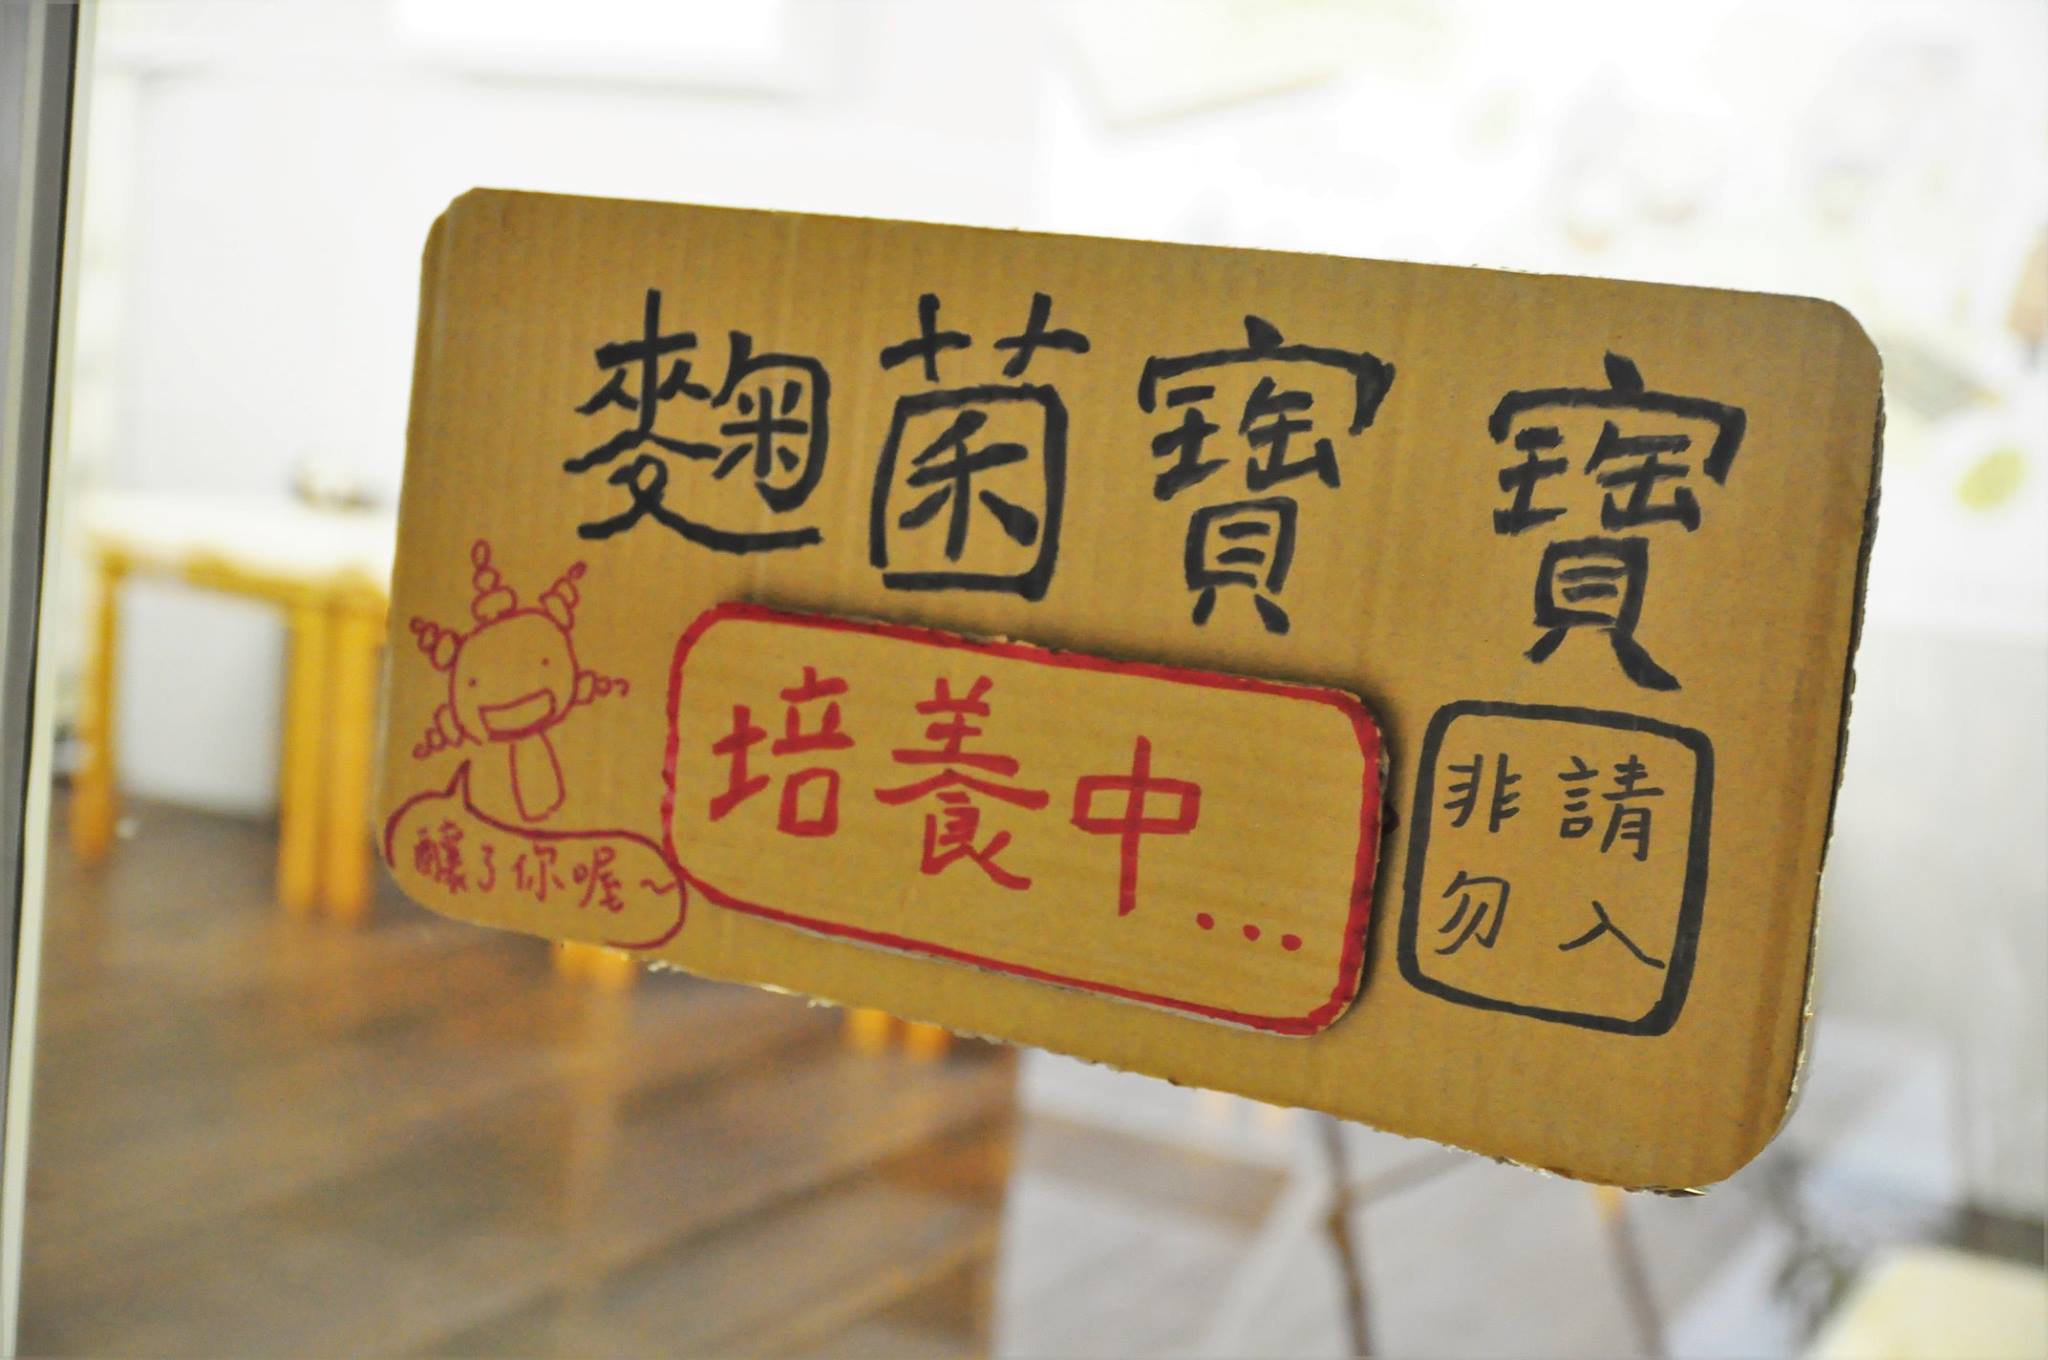 麴菌寶寶
培養中...
非請
勿入
釀了你喔~